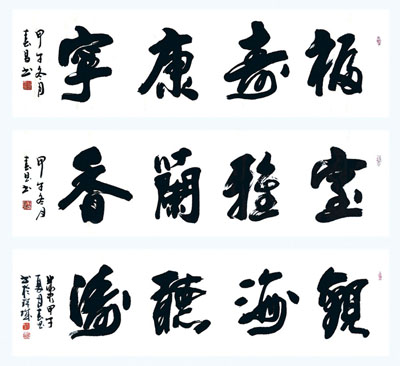 福寿康寧
甲午冬月
室雅蘭香
甲午冬月
觀海聽濤